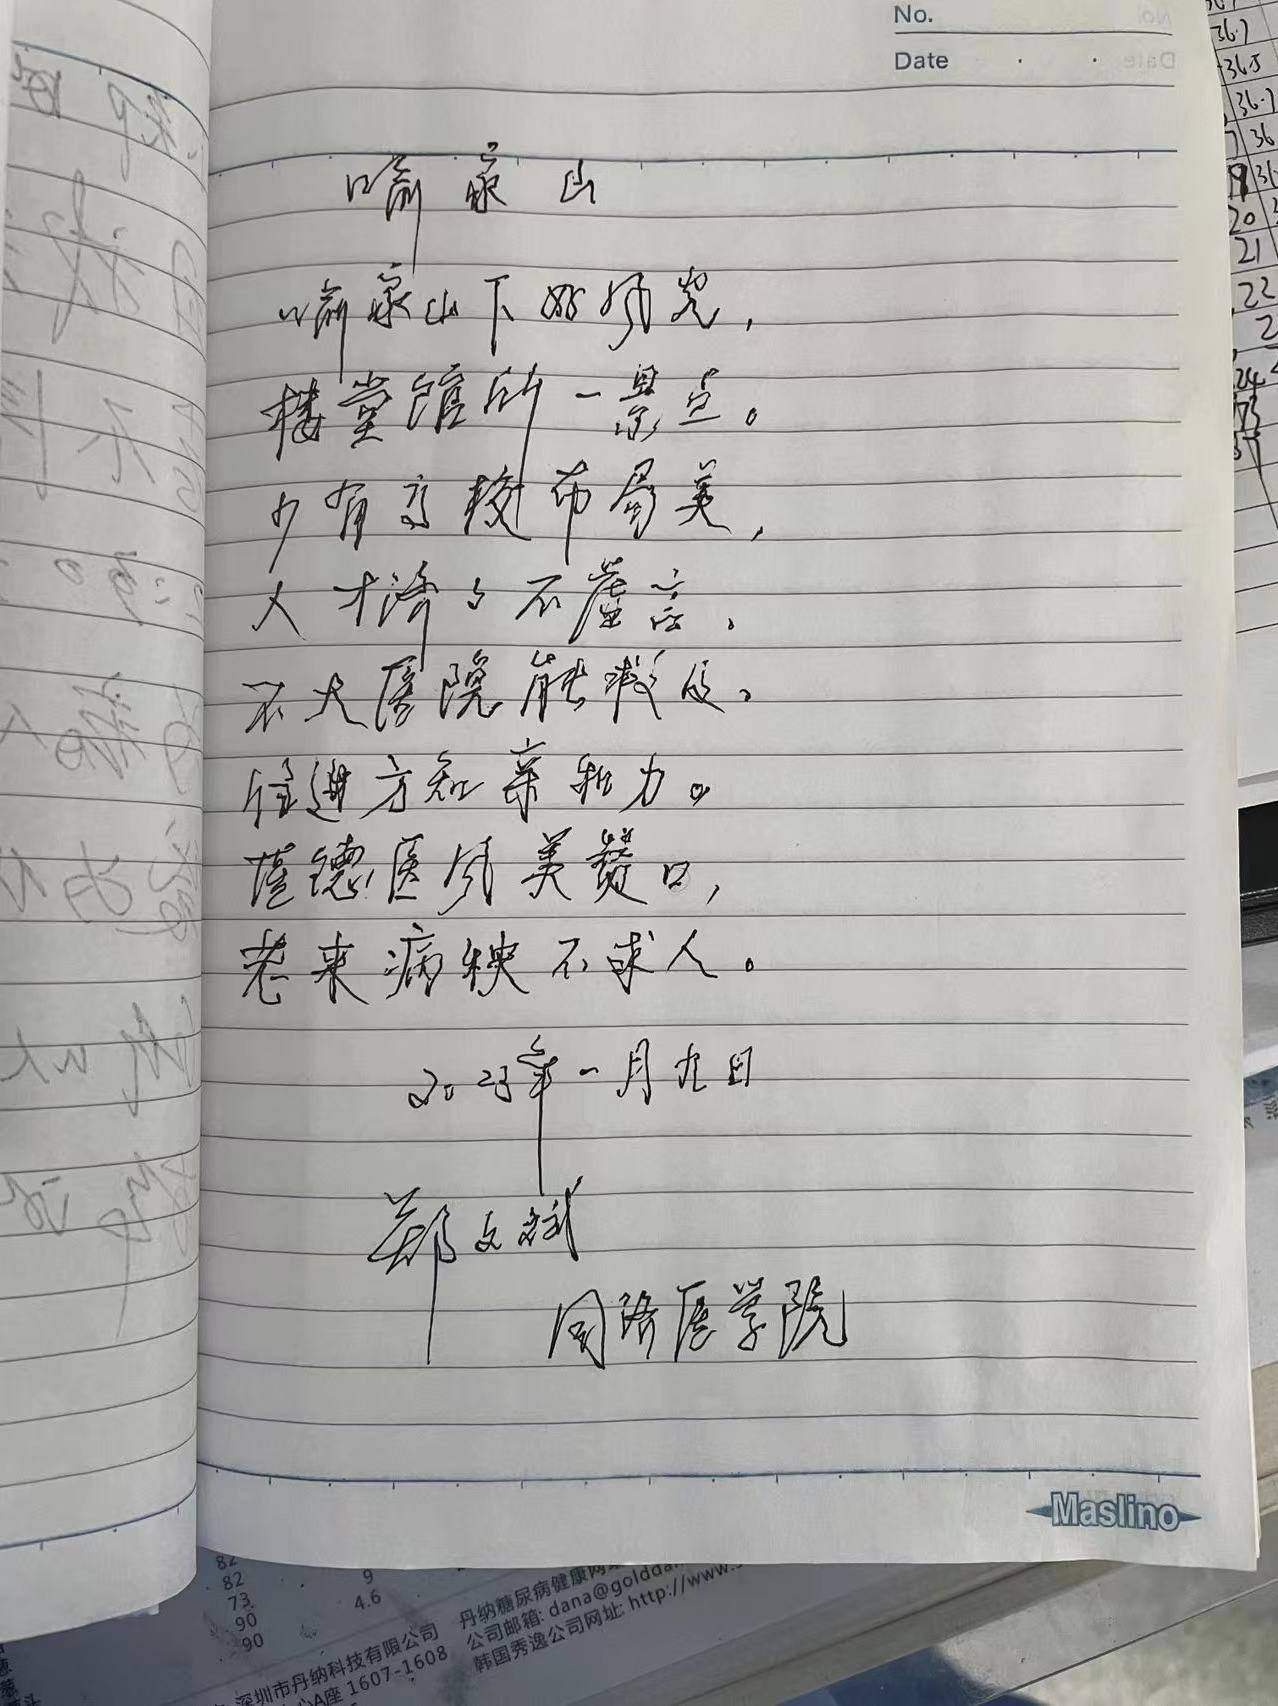 No.
Date
喻家山
喻家山下好风光,
楼堂馆所一景点。
少有高校布局美,
人才济々不虚言,
不大医院能减压,
住进方知亲和力。
医风美赞口,
老来病殃不求人。
2023年一月九日
郑文斌
同济医学院
Maslino
36.7
36.5
36.7
36
20
21
22
24
82
82
73
90
90
9
4.6
深圳市丹纳科技有限公司
心A座 1607-1608
丹纳糖尿病健康网
公司邮箱: dana@goldda
韩国秀逸公司网址: http://www.